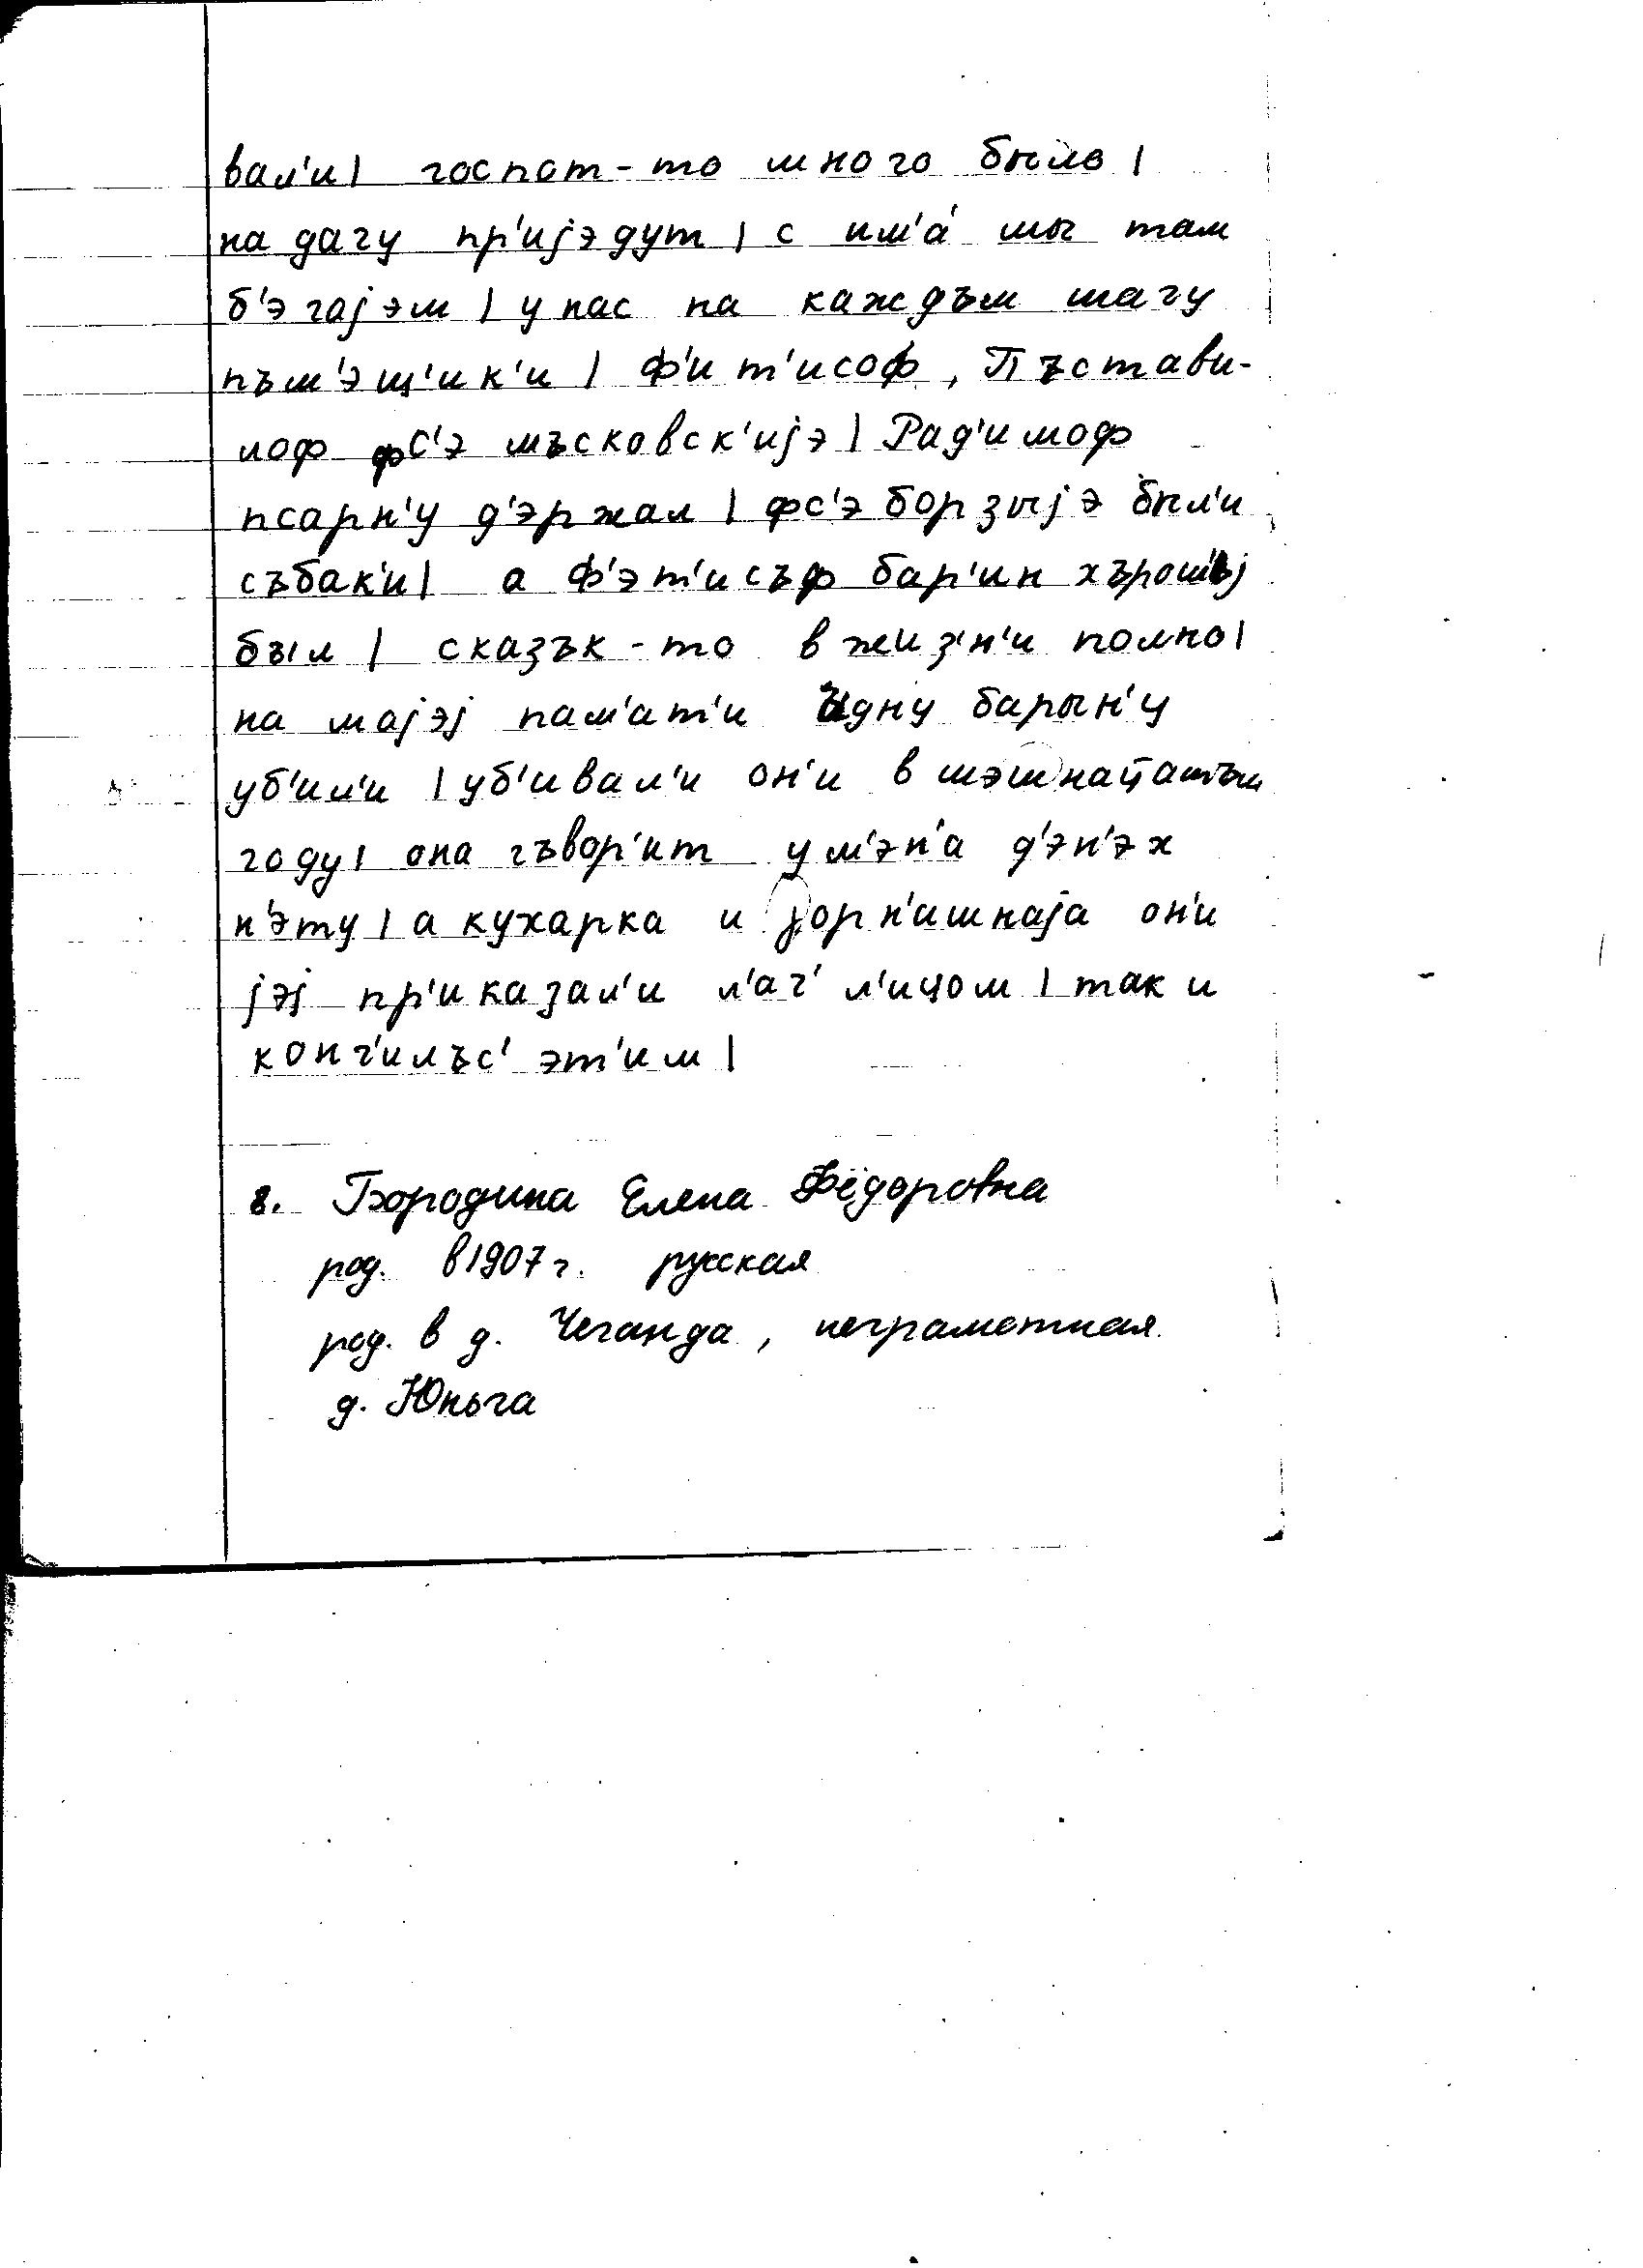 вал'и| госпот-то много было|
на дачу пр'иjэдут| с им'а́ мы там
б'эгаjэм| у нас на каждъм шагу
пъм'эщ'ик'и| Ф'ит'исоф, Пъстави-
лоф фс'э мъсковск'иjэ| Рад'имоф
псарн'у д'эржал| фс'э борзыjэ был'и
събак'и| а Ф'эт'исъф бар'ин хърошъj
был| сказък-то в жиз'н'и полно|
на маjэj пам'ат'и ъдну барын'у
уб'ил'и| уб'ивал'и он'и в шэшнаꙡатъм
году| она гъвор'ит у м'эн'а д'эн'эх
н'эту| а кухарка и горн'ишнаjа он'и
jэj пр'иказал'и л'ач' л'ицом| так и
конч'илъс' эт'им|
8. Бородина Елена Фёдоровна
род. в 1907 г. русская
род. в д. Чеганда, неграмотная
д. Юньга